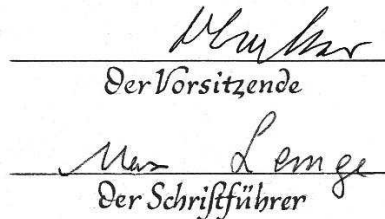 Der Vorsitzende
Max Lemge
der Schriftführer